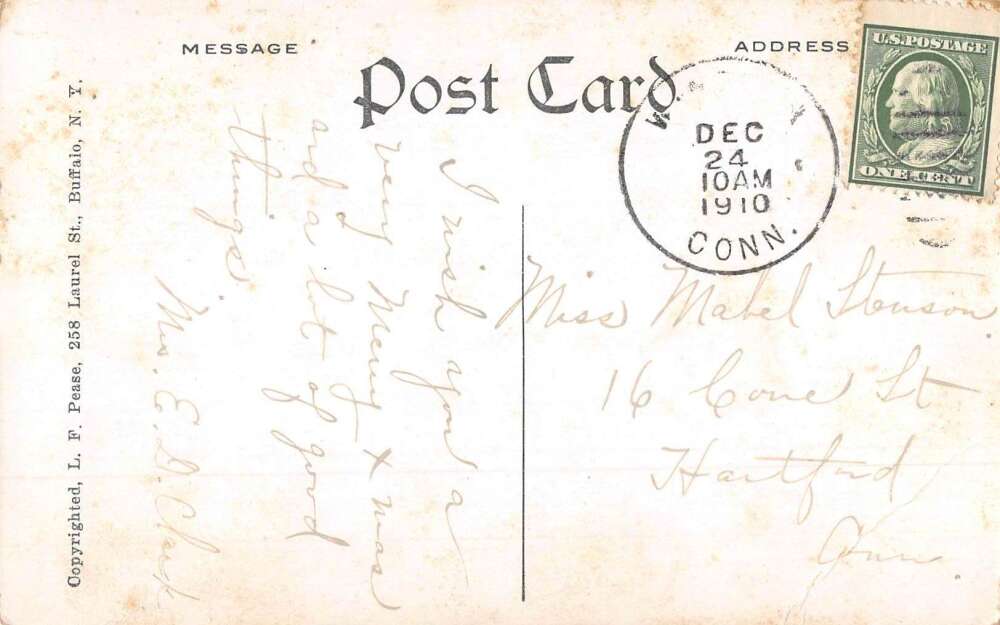 MESSAGE
Post Card
ADDRESS
U.S. POSTAGE
ONE CENT
DEC
24
10AM
1910
CONN.
Copyrighted, L. F. Pease, 258 Laurel St., Buffalo, N. Y.
I wish you a
very Merry Xmas
and a lot of good
things.
Mrs. E. D. Clark
Miss Mabel Stenson
16 Cone St
Hartford
Conn.